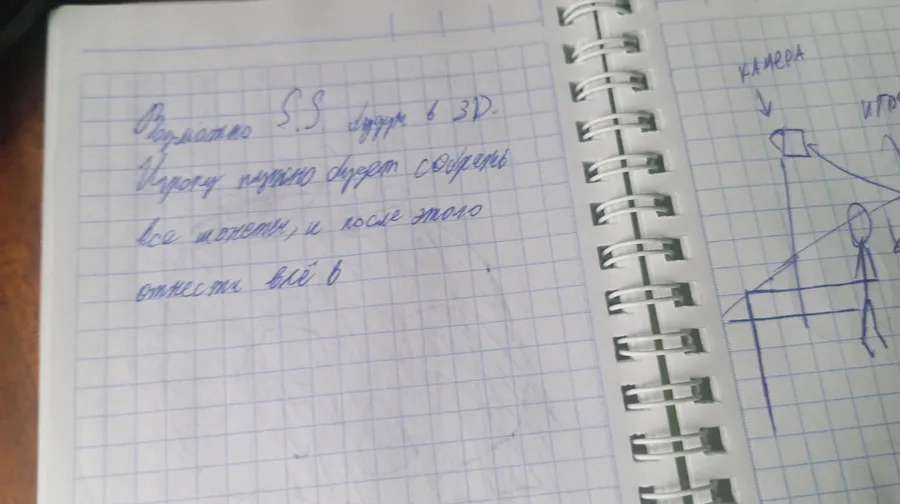 Возможно S.S будет в 3D.
Игроку нужно будет собрать
все монеты, и после этого
отнести всё в
КАМЕРА